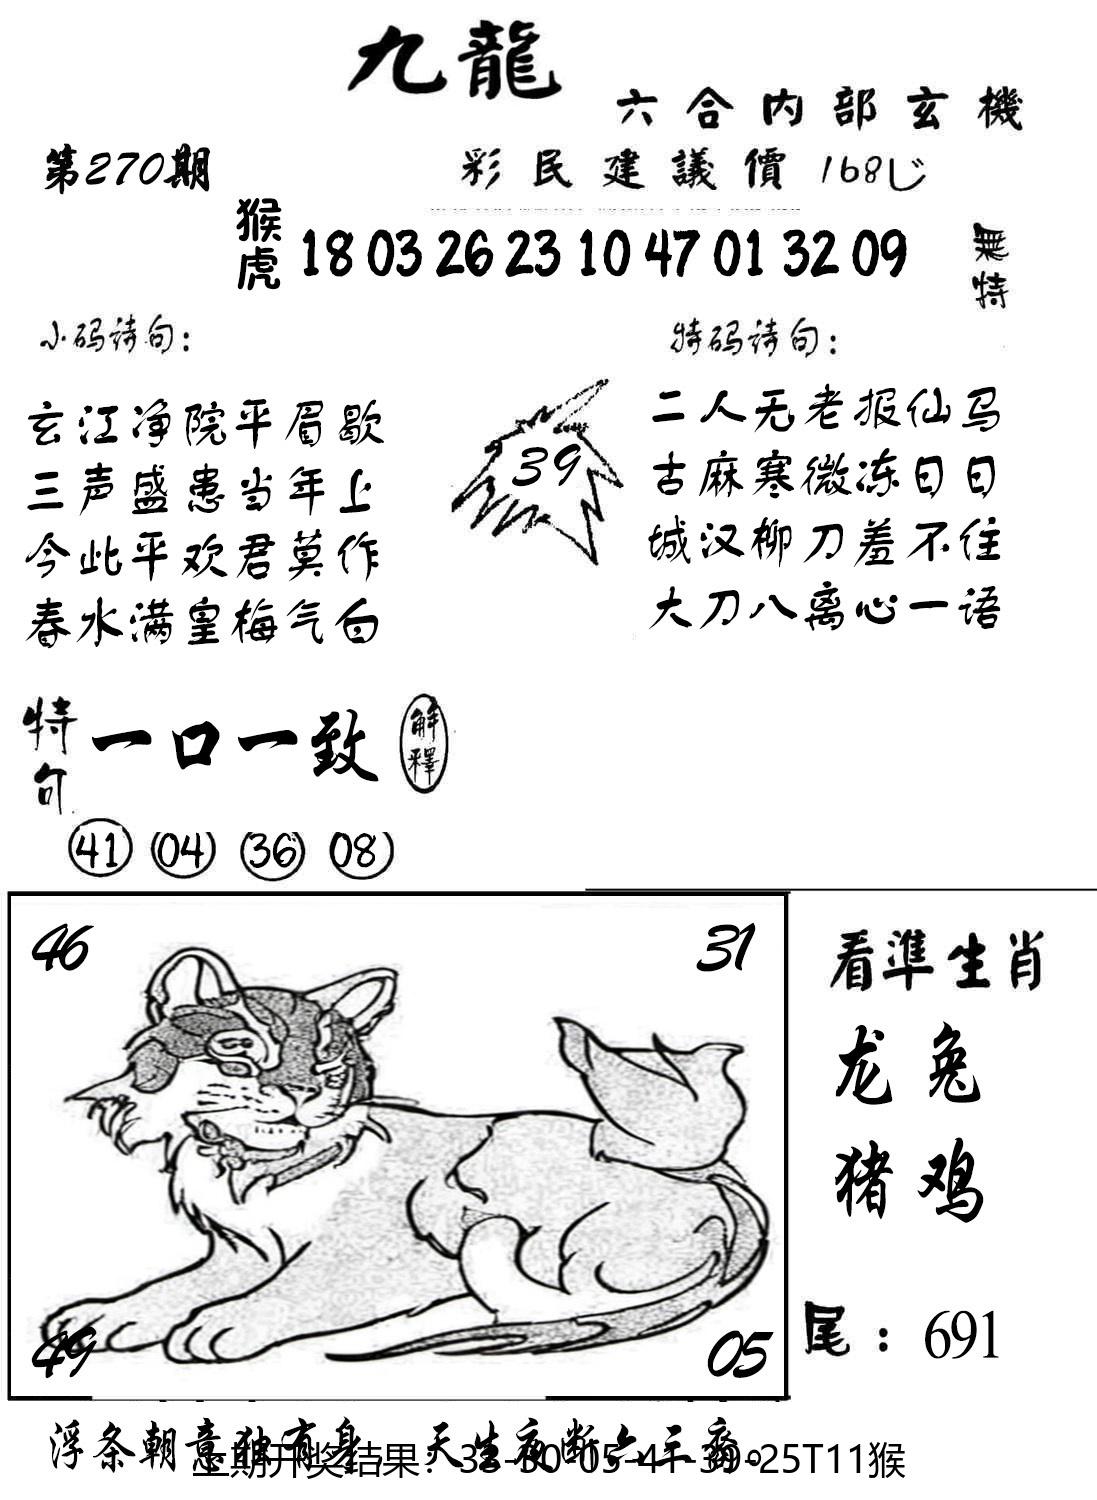 九龍
六合内部玄機
第270期
彩民建議價168
猴虎
18 03 26 23 10 47 01 32 09
無特
小码诗句：
玄江净院平眉歇
三声盛患当年上
今此平欢君莫作
春水满皇梅气白
39
特码诗句：
二人无老报仙马
古麻寒微冻日日
城汉柳刀羞不住
大刀八离心一语
特句
一口一致
解釋
41 04 36 08
46
31
49
05
看準生肖
龙兔
猪鸡
尾：691
浮条朝意独有身，天生夜断六三裔。
上期开奖结果：-30-05-41-39-25T11猴